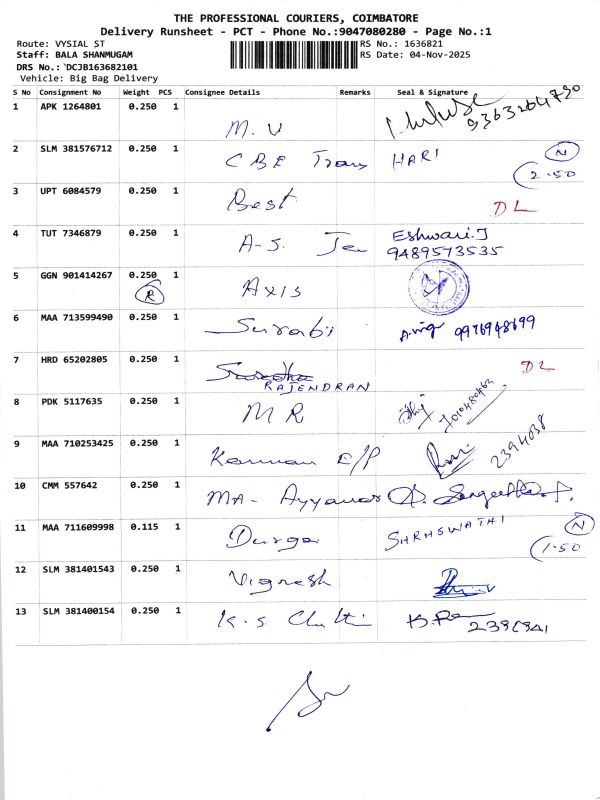 THE PROFESSIONAL COURIERS, COIMBATORE
Delivery Runsheet - PCT - Phone No.:9047080280 - Page No.:1
Route: VYSIAL ST
Staff: BALA SHANMUGAM
DRS No.:`DCJB163682101
Vehicle: Big Bag Delivery
RS No.: 1636821
RS Date: 04-Nov-2025
S No Consignment No Weight PCS Consignee Details Remarks Seal & Signature
1 APK 1264801 0.250 1 M. U 9363264790
2 SLM 381576712 0.250 1 CBE Trans HARI N 2.50
3 UPT 6084579 0.250 1 Best DL
4 TUT 7346879 0.250 1 A-S. Eshwari.J
9489573535
5 GGN 901414267 0.250 1 Axis
R
6 MAA 713599490 0.250 1 Surabi 9976948699
7 HRD 65202805 0.250 1 RAJENDRAN DL
8 PDK 5117635 0.250 1 M R 7010480463
9 MAA 710253425 0.250 1 E/P 2394038
10 CMM 557642 0.250 1 MA- Ayyanar
11 MAA 711609998 0.115 1 Durga N 1.50
12 SLM 381401543 0.250 1 Vignesh
13 SLM 381400154 0.250 1 K.S